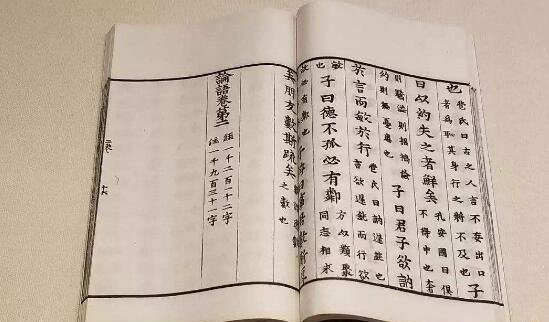 也 苞氏曰古之人言不妄出口
者為恥其身行之將不及也 子
曰以約失之者鮮矣 孔安國曰俱
不得中也奢
則驕溢則招禍儉
約則無憂患也 子曰君子欲訥
於言而敏於行 苞氏曰訥遲鈍也
言欲遲鈍而行欲
敏
也 子曰德不孤必有鄰 方以類聚
同志相求
故必有鄰
矣朋友數斯疏矣 之數也
論語卷第二
經一千二百一十二字
註一千九百三十一字